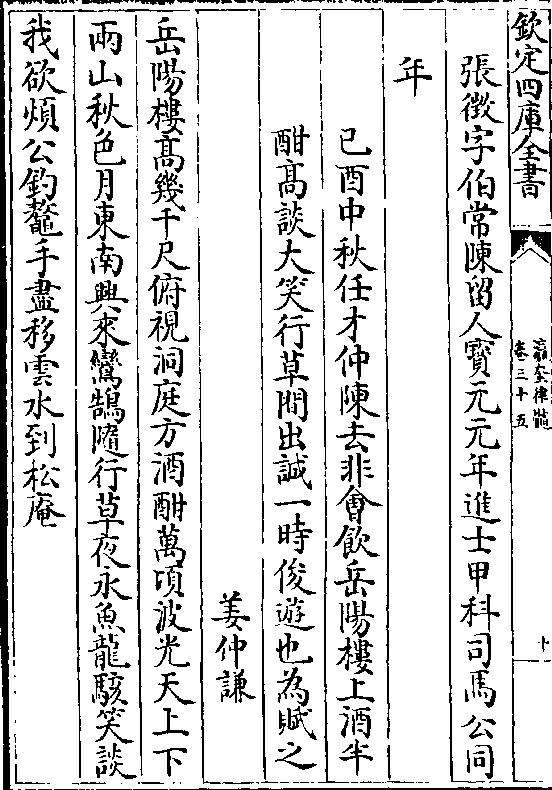 欽定四庫全書
瀛奎律髓
卷三十五
十
張徴字伯常陳留人寳元元年進士甲科司馬公同
年
己酉中秋任才仲陳去非會飲岳陽樓上酒半
酣髙談大笑行草間出誠一時俊遊也為賦之
姜仲謙
岳陽樓髙幾千尺俯視洞庭方酒酣萬頃波光天上下
兩山秋色月東南興來鸞鵠隨行草夜永魚龍駭笑談
我欲煩公釣鼇手盡移雲水到松庵